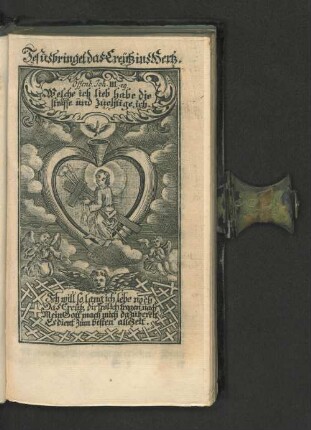 Jesus bringet das Creütz ins Hertz.
Offenb. Joh. III. 19.
Welche ich lieb habe die
straffe und züchtige ich.
Ich will so lang ich lebe noch
Das Creütz dir frölich tragen nach
Mein Gott mach mich darzu bereit
Es dient zum besten allezeit.